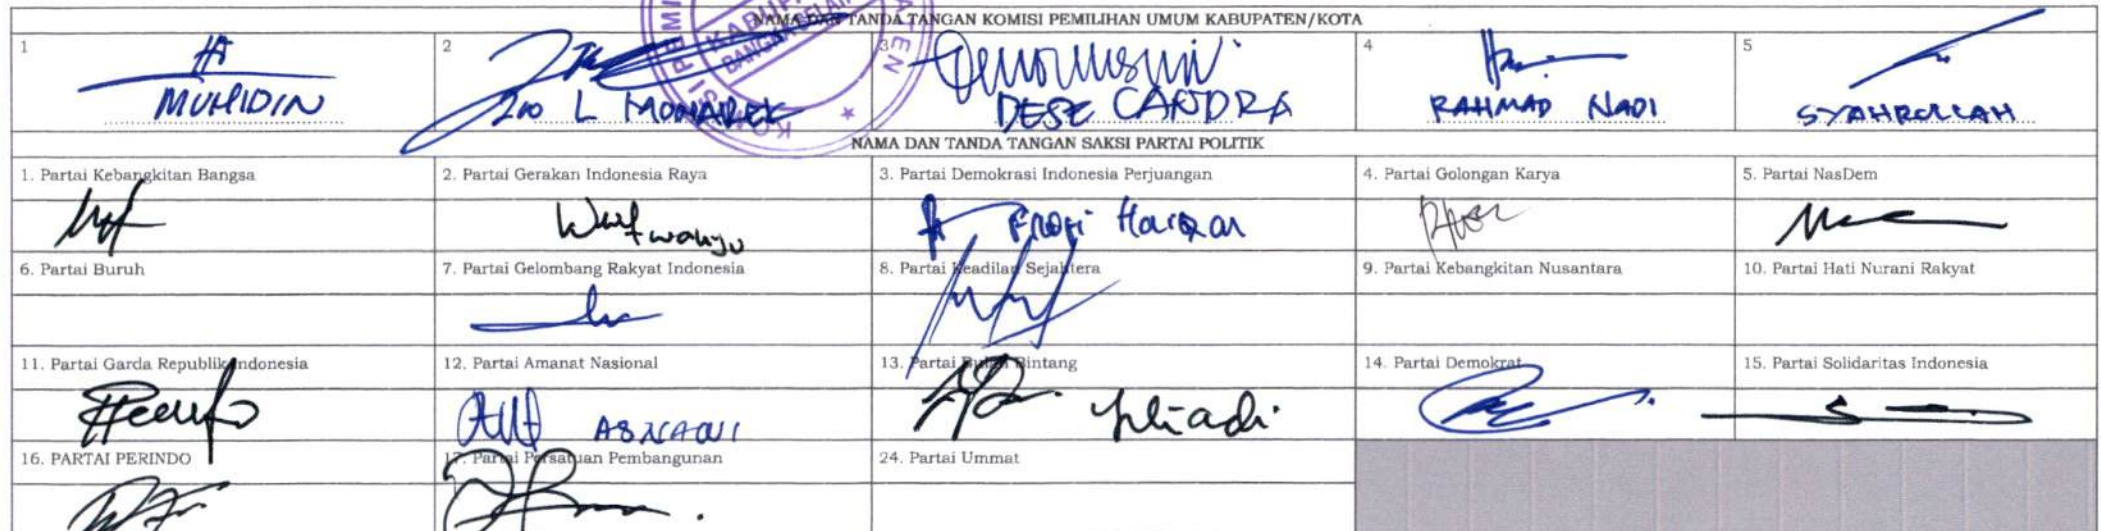 NAMA DAN TANDA TANGAN KOMISI PEMILIHAN UMUM KABUPATEN/KOTA
1 2 3 4 5
MUHIDIN
L
DESE CANDRA
RAHMAD NADI
SYAHROLLAH
NAMA DAN TANDA TANGAN SAKSI PARTAI POLITIK
1. Partai Kebangkitan Bangsa
2. Partai Gerakan Indonesia Raya
3. Partai Demokrasi Indonesia Perjuangan
4. Partai Golongan Karya
5. Partai NasDem
wahyu
6. Partai Buruh
7. Partai Gelombang Rakyat Indonesia
8. Partai Keadilan Sejahtera
9. Partai Kebangkitan Nusantara
10. Partai Hati Nurani Rakyat
11. Partai Garda Republik Indonesia
12. Partai Amanat Nasional
13. Partai Bulan Bintang
14. Partai Demokrat
15. Partai Solidaritas Indonesia
ASNAWI
16. PARTAI PERINDO
17. Partai Persatuan Pembangunan
24. Partai Ummat